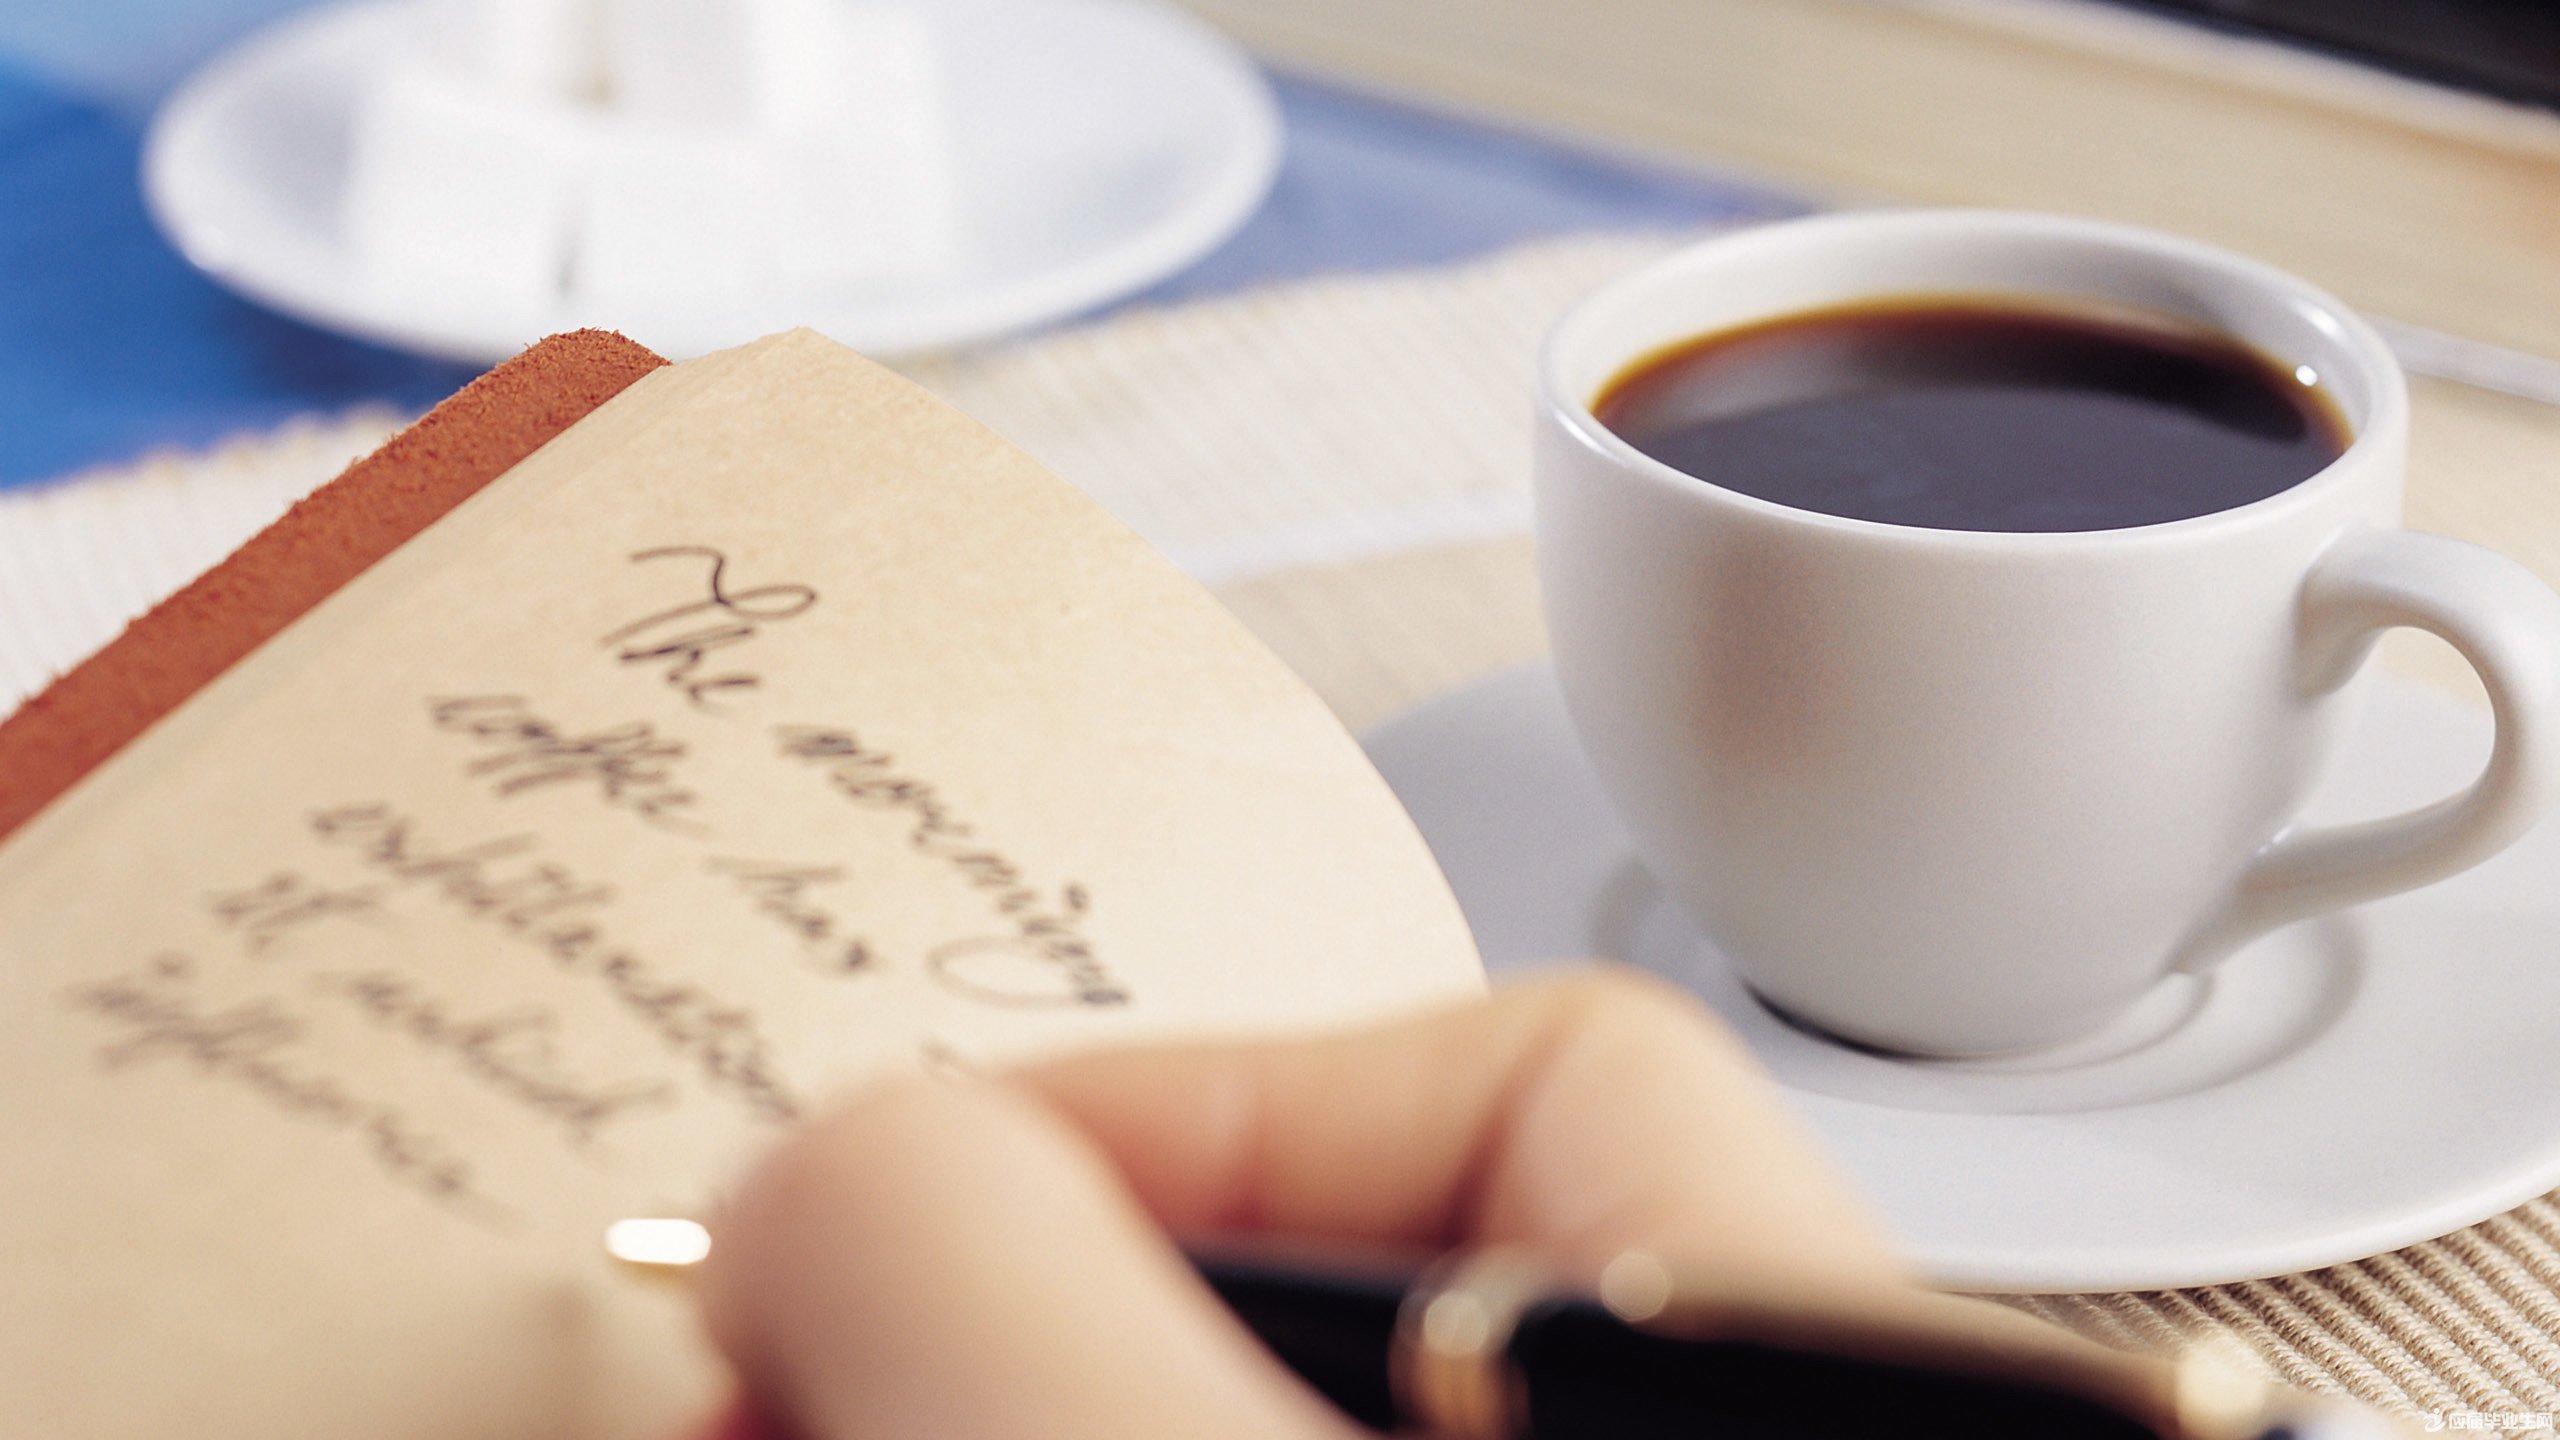 The morning
coffee has
exhilaration
it which
influence
应届毕业生网